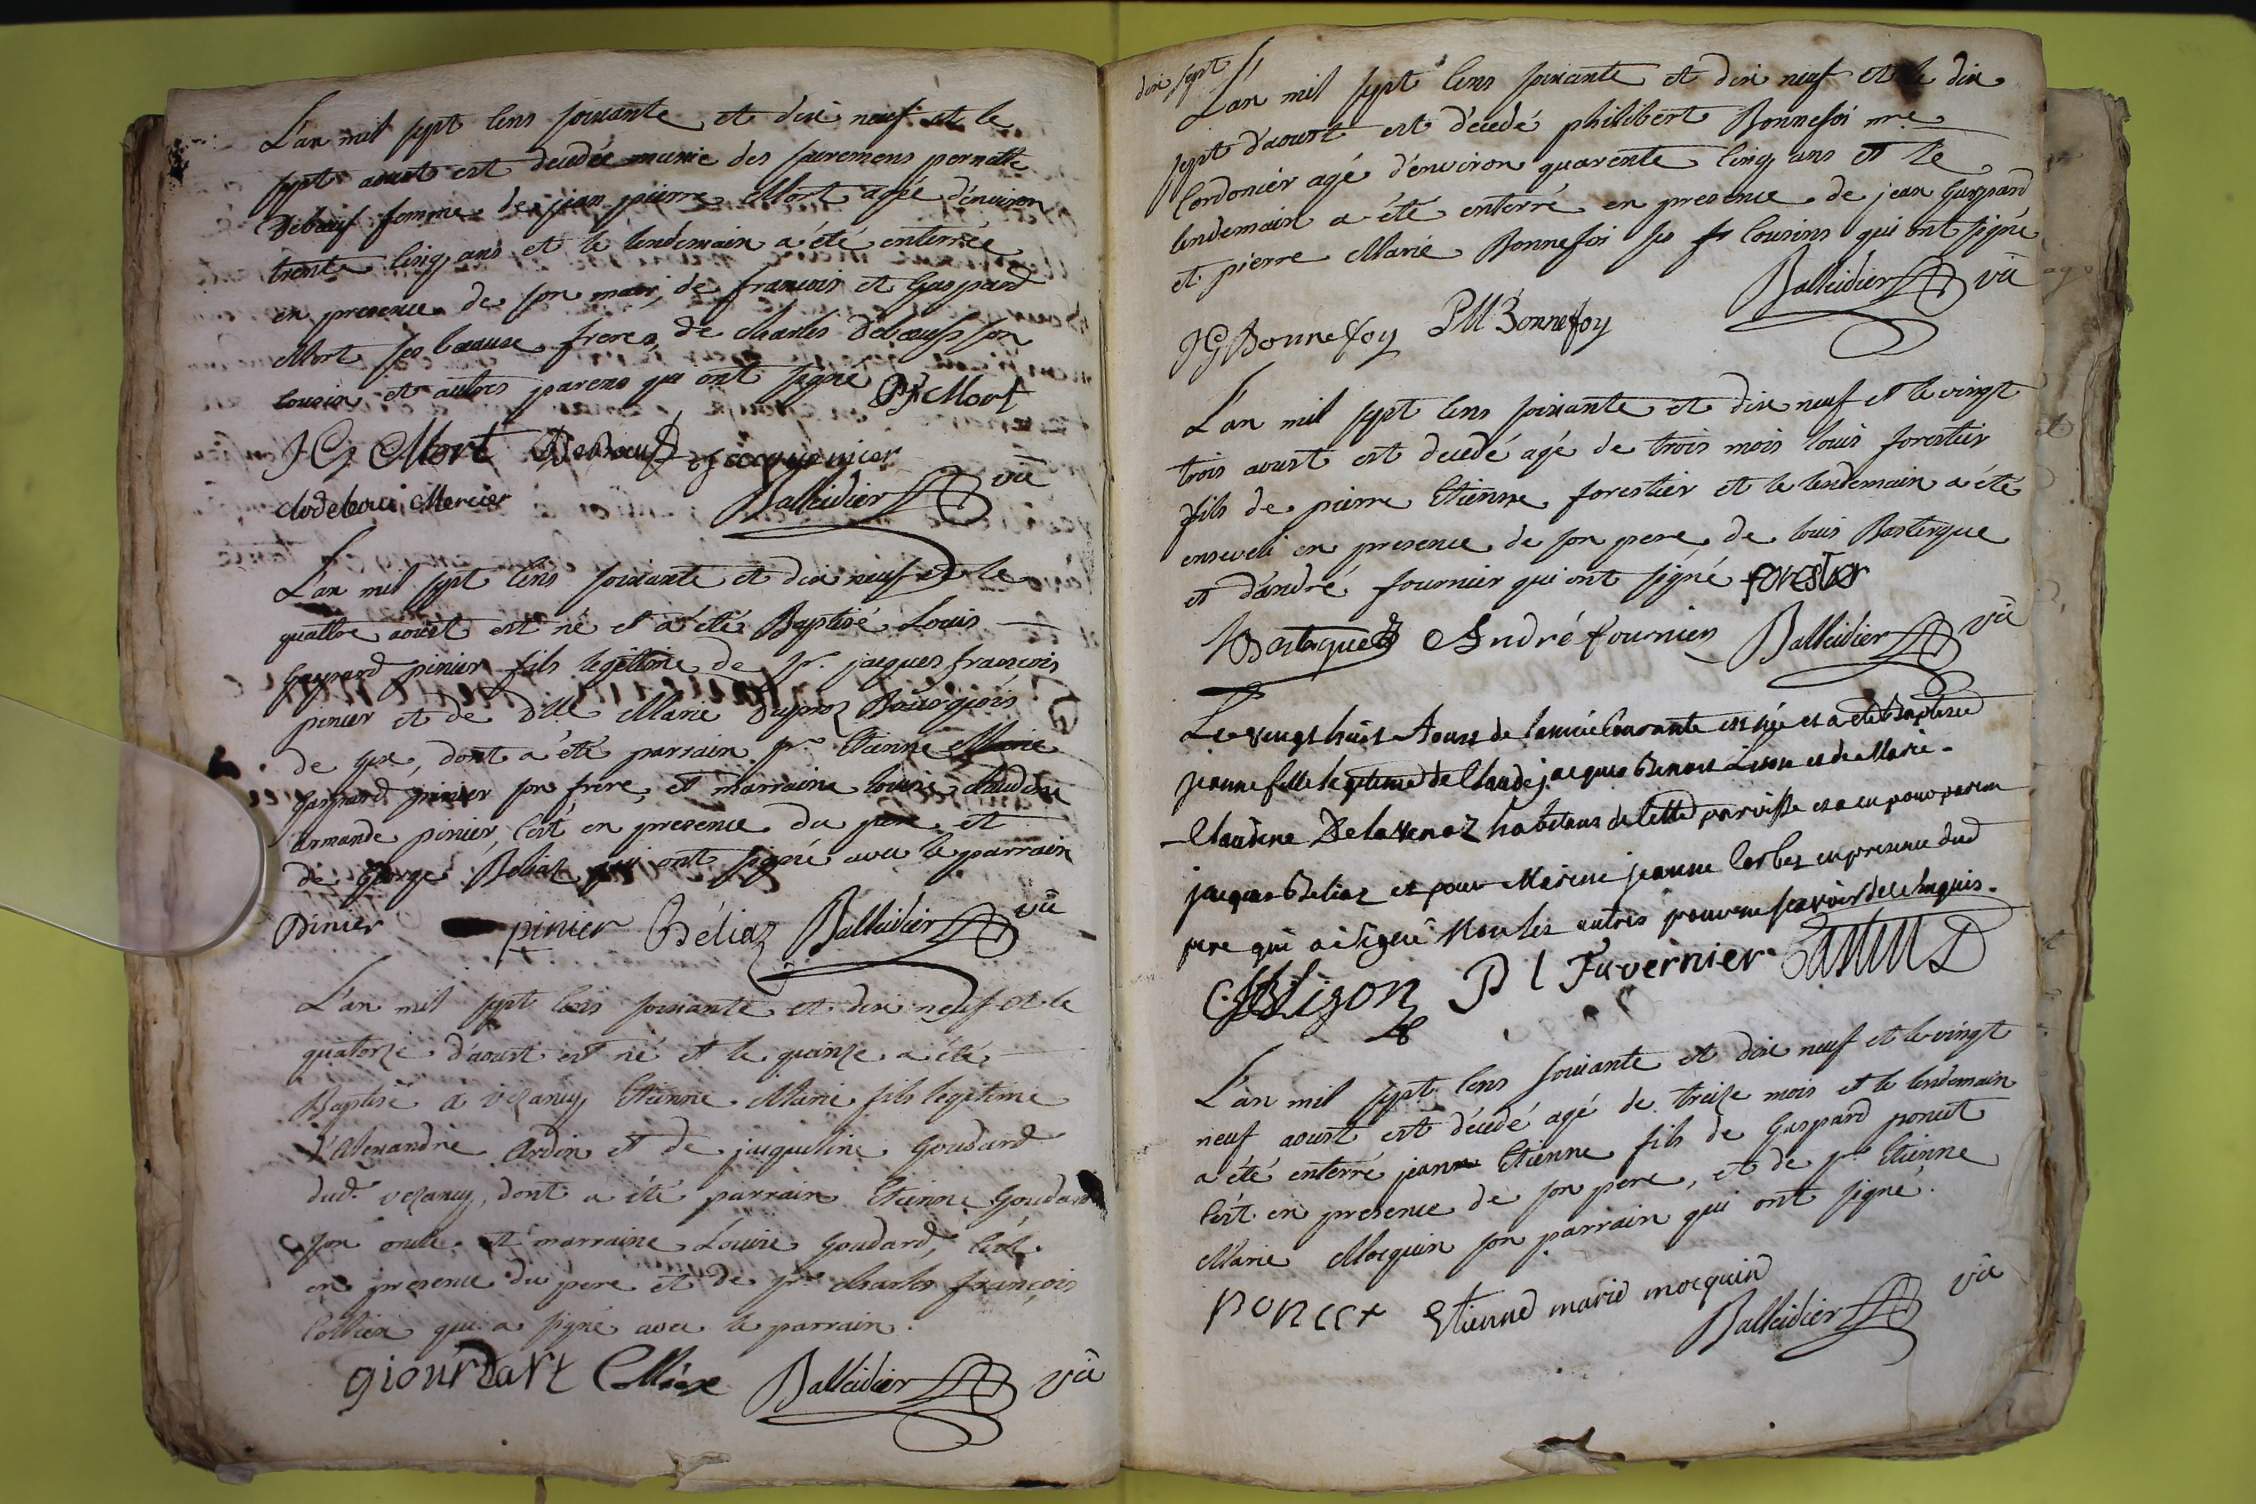 L'an mil sept cens soixante et dix neuf et le
sept aoust est decedée munie des sacremens pernette
Deboeuf femme de jean pierre Mort agée d'environ
trente cinq ans et le lendemain a été enterrée
en presence de son mari, de françois et Gaspard
Mort ses beaux freres, de charles Deboeuf son
cousin et autres parens qui ont signé PF Mort
J G Mort DeBoeuf
clode loui Mercier Balleidier vic
L'an mil sept cens soixante et dix neuf et le
quattre aoust est né et a été Baptisé Louis
Gaspard pinier fils legitime de sr. jacques françois
pinier et de dlle Marie Duproz Bourgeois
de gex, dont a été parrain sr. Etienne Marie
Gaspard pinier son frere, et marraine louise claudine
armande pinier, c'est en presence du pere et
de George Béliaz qui ont signé avec le parrain
Pinier pinier Béliaz Balleidier vic
L'an mil sept cens soixante et dix neuf et le
quatorze d'aoust est né et le quinze a été
Baptisé a vezancy Etienne Marie fils legitime
d'Alexandre Ardin et de jacqueline Goudard
dud. vezancy, dont a été parrain Etienne Goudard
son oncle et marraine Louise Goudard, c'est
en presence du pere et de sr. charles françois
Collier qui a signé avec le parrain.
giourdart Balleidier vic
dix sept
L'an mil sept cens soixante et dix neuf et le dix
sept d'aoust est décedé philibert Bonnefoi me
Cordonier agé d'environ quarente cinq ans et le
lendemain a été enterré en presence de jean Gaspard
et pierre Marie Bonnefoi ses cousins qui ont signé
Balleidier vic
JG Bonnefoy PM Bonnefoy
L'an mil sept cens soixante et dix neuf et le vingt
trois aoust est decedé agé de trois mois louis forestier
fils de pierre Etienne forestier et le lendemain a été
enseveli en presence de son pere, de louis Bastergue
et d'andré fournier qui ont signé forestier
André fournier Balleidier vic
Le vingt huit Aoust de lannée Courante est née et a eté Baptisée
jeanne fille legitime de Claude jacques Benoit Lison et de Marie
Claudine Delavenaz habitans de Cette parroisse et a eu pour parein
jacques Beliaz et pour Mareine jeanne Corbez en presence dud
pere qui a signé Non les autres pour ne scavoir de ce Enquis.
CJB Lizon P l Tavernier
L'an mil sept cens soixante et dix neuf et le vingt
neuf aoust est décedé agé de treize mois et le lendemain
a été enterré jean Etienne fils de Gaspard poncet
c'est en presence de son pere, et de sr. Etienne
Marie Mocquin son parrain qui ont signé.
poncet Etienne marie mocquin
Balleidier vic